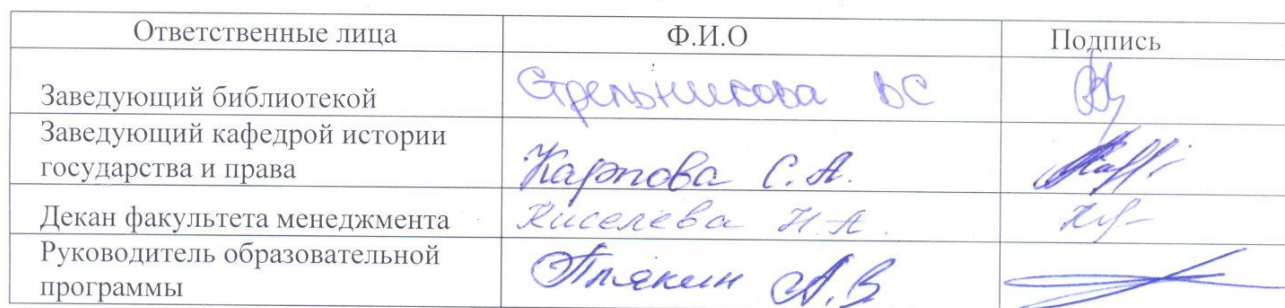 Ответственные лица Ф.И.О Подпись
Заведующий библиотекой Стрельникова ВС
Заведующий кафедрой истории
государства и права Карпова С.А.
Декан факультета менеджмента Киселева Н.А.
Руководитель образовательной
программы Плякин А.В